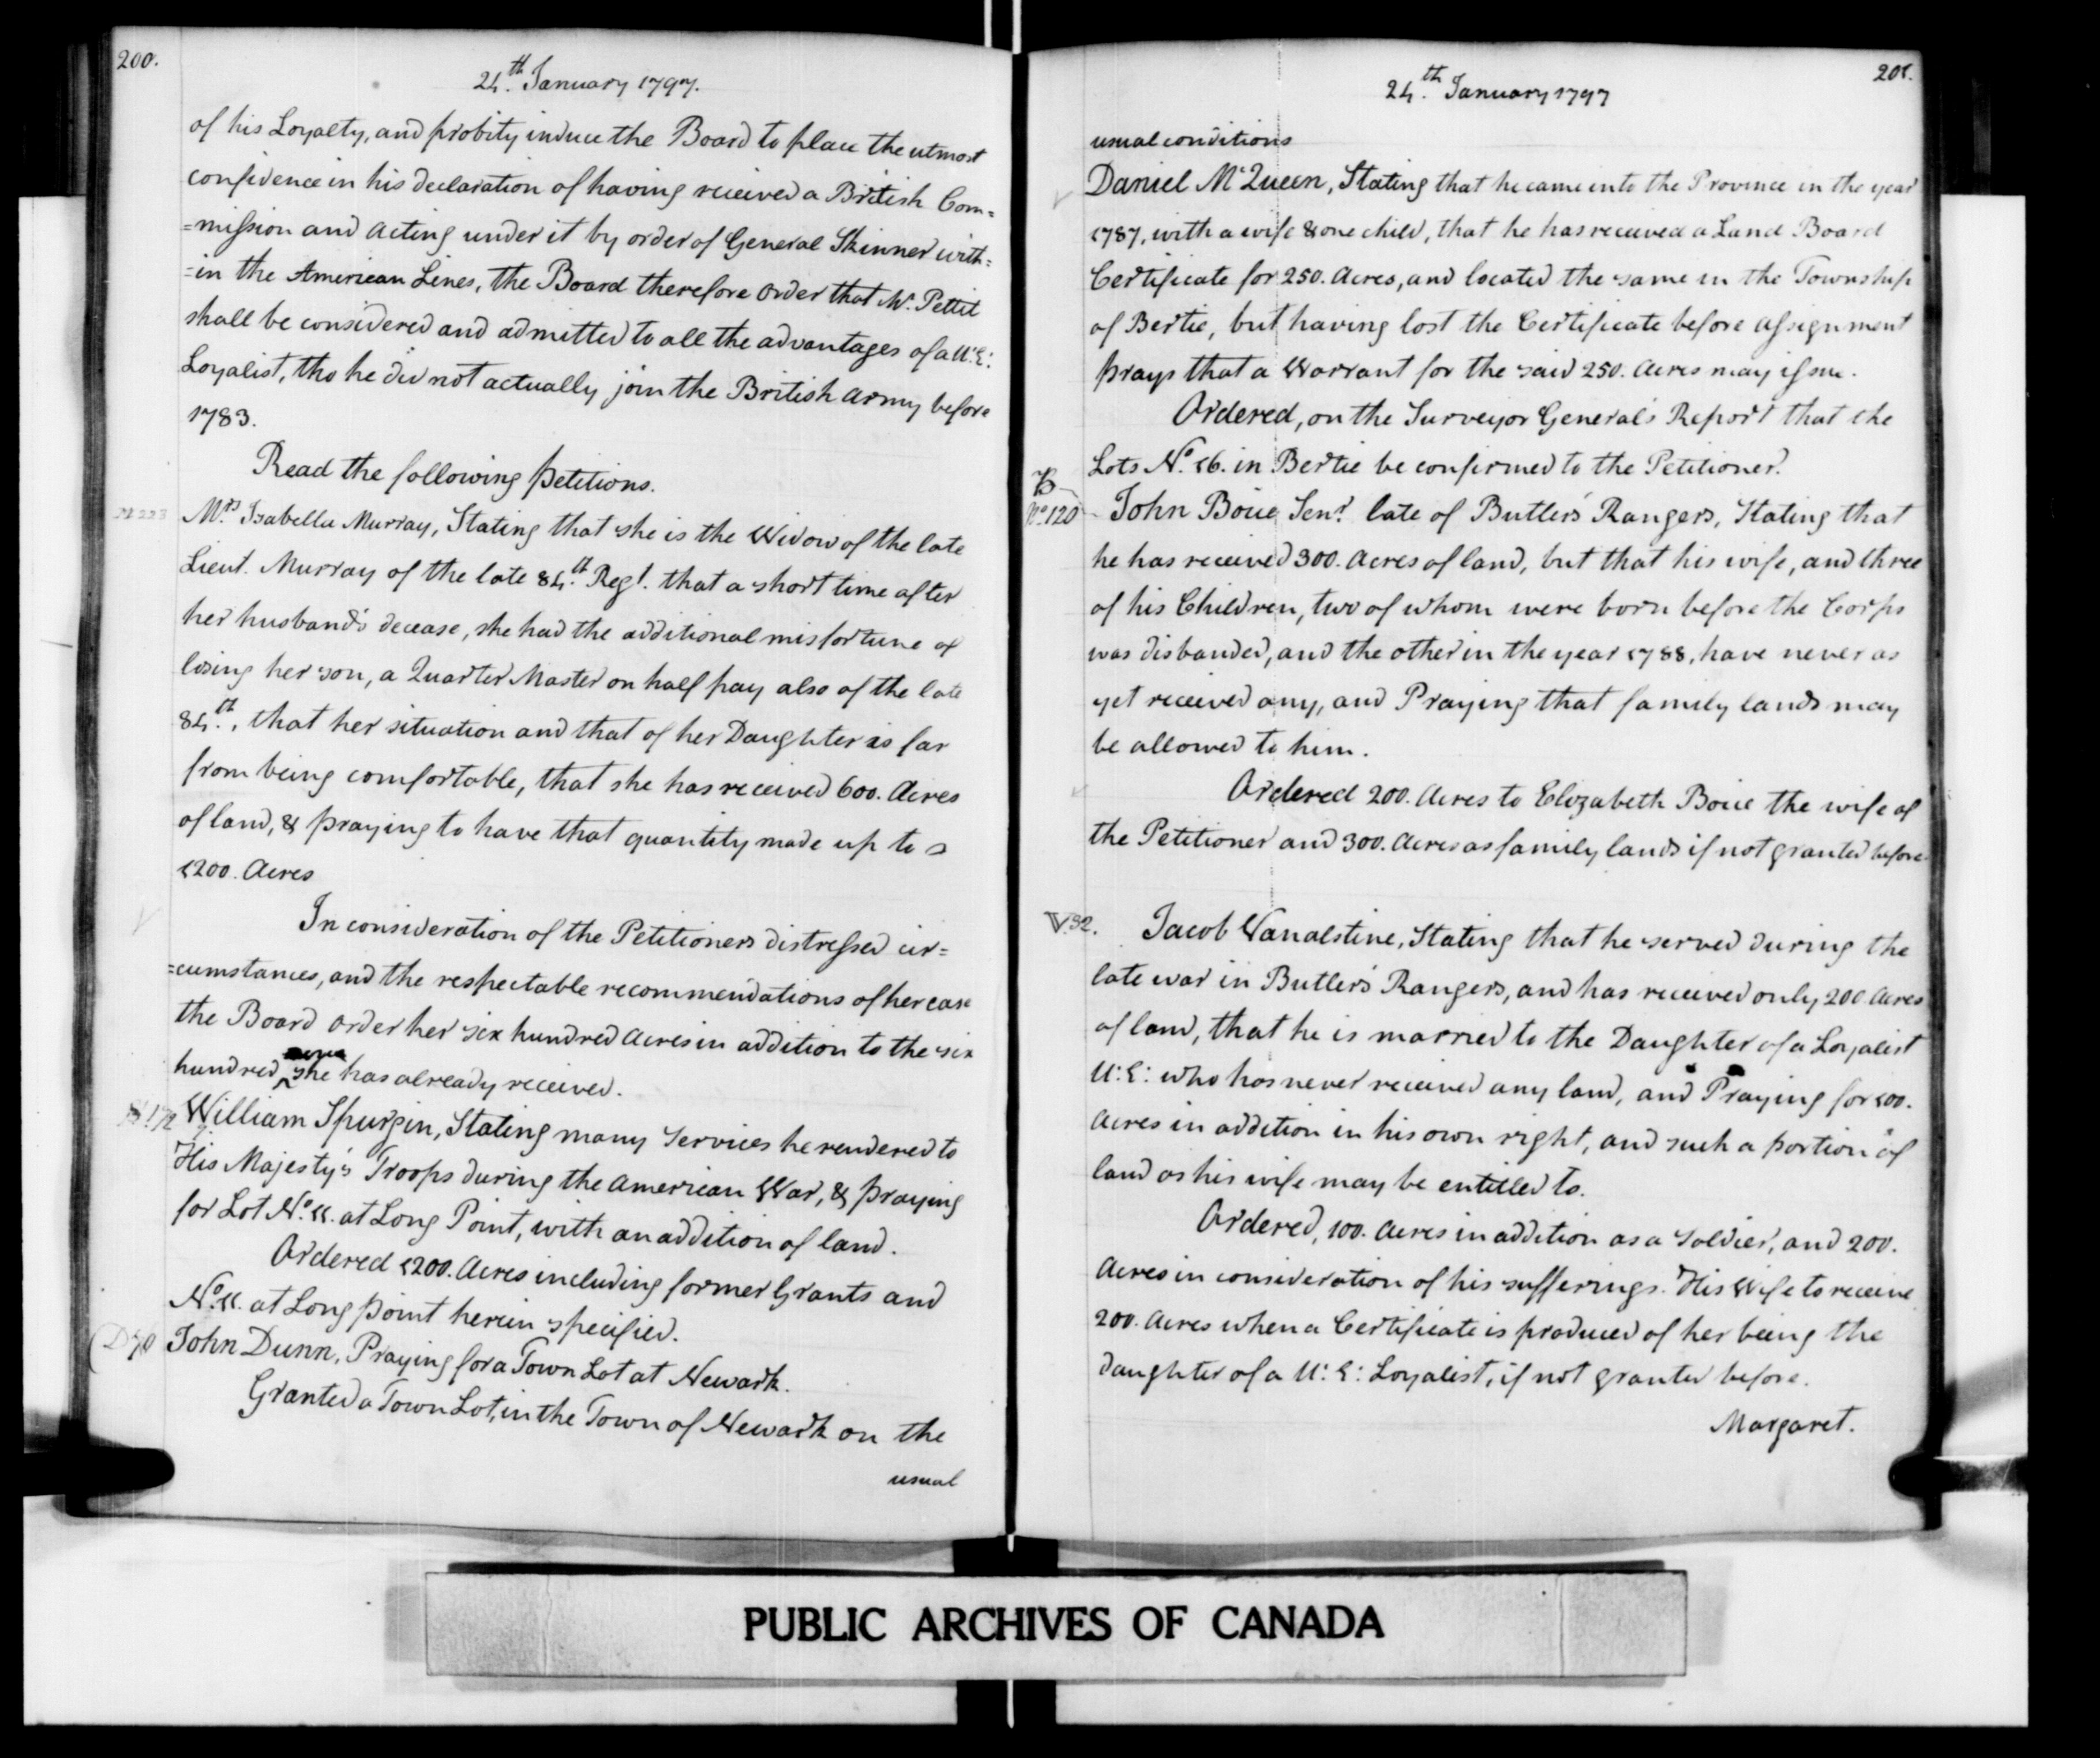 200.
24.th January 1797.
of his Loyalty, and probity induce the Board to place the utmost
confidence in his declaration of having received a British Com=
=mission and acting under it by order of General Skinner with=
=in the American Lines, the Board therefore order that Mr. Pettit
shall be considered and admitted to all the advantages of a U:E:
Loyalist, tho he did not actually join the British Army before
1783.
Read the following petitions.
M 223
Mrs. Isabella Murray, Stating that she is the Widow of the late
Lieut. Murray of the late 84.th Regt. that a short time after
her husband's decease, she had the additional misfortune of
losing her son, a Quarter Master on half pay also of the late
84th., that her situation and that of her Daughter is far
from being comfortable, that she has received 600. Acres
of land, & praying to have that quantity made up to
1200. Acres
In consideration of the Petitioners distressed cir=
=cumstances, and the respectable recommendations of her case
the Board order her six hundred Acres in addition to the six
hundred acres she has already received.
William Spurgin, Stating many Services he rendered to
His Majesty's Troops during the American War, & praying
for Lot No. 11. at Long Point, with an addition of land.
Ordered 1200. Acres including former Grants and
No. 11. at Long point herein specified.
D 70
John Dunn, Praying for a Town Lot at Newark.
Granted a Town Lot, in the Town of Newark on the
usual
201.
24.th January 1797
usual conditions
Daniel McQueen, Stating that he came into the Province in the year
1787, with a wife & one child, that he has received a Land Board
Certificate for 250. Acres, and located the same in the Township
of Bertie, but having lost the Certificate before assignment
prays that a Warrant for the said 250. Acres may issue.
Ordered, on the Surveyor General's Report that the
Lots No. 16. in Bertie be confirmed to the Petitioner.
B
No. 120
John Boice Senr. late of Butler's Rangers, Stating that
he has received 300. Acres of land, but that his wife, and three
of his Children, two of whom were born before the Corps
was disbanded, and the other in the year 1788, have never as
yet received any, and Praying that family lands may
be allowed to him.
Ordered 200. Acres to Elizabeth Boice the wife of
the Petitioner and 300. Acres as family lands if not granted before.
V.32.
Jacob Vanalstine, Stating that he served during the
late war in Butler's Rangers, and has received only 200 Acres
of land, that he is married to the Daughter of a Loyalist
U:E: who has never received any land, and Praying for 100.
Acres in addition in his own right, and such a portion of
land as his wife may be entitled to.
Ordered, 100. Acres in addition as a Soldier, and 200.
Acres in consideration of his sufferings. His Wife to receive
200. Acres when a Certificate is produced of her being the
daughter of a U:E: Loyalist, if not granted before.
Margaret.
PUBLIC ARCHIVES OF CANADA